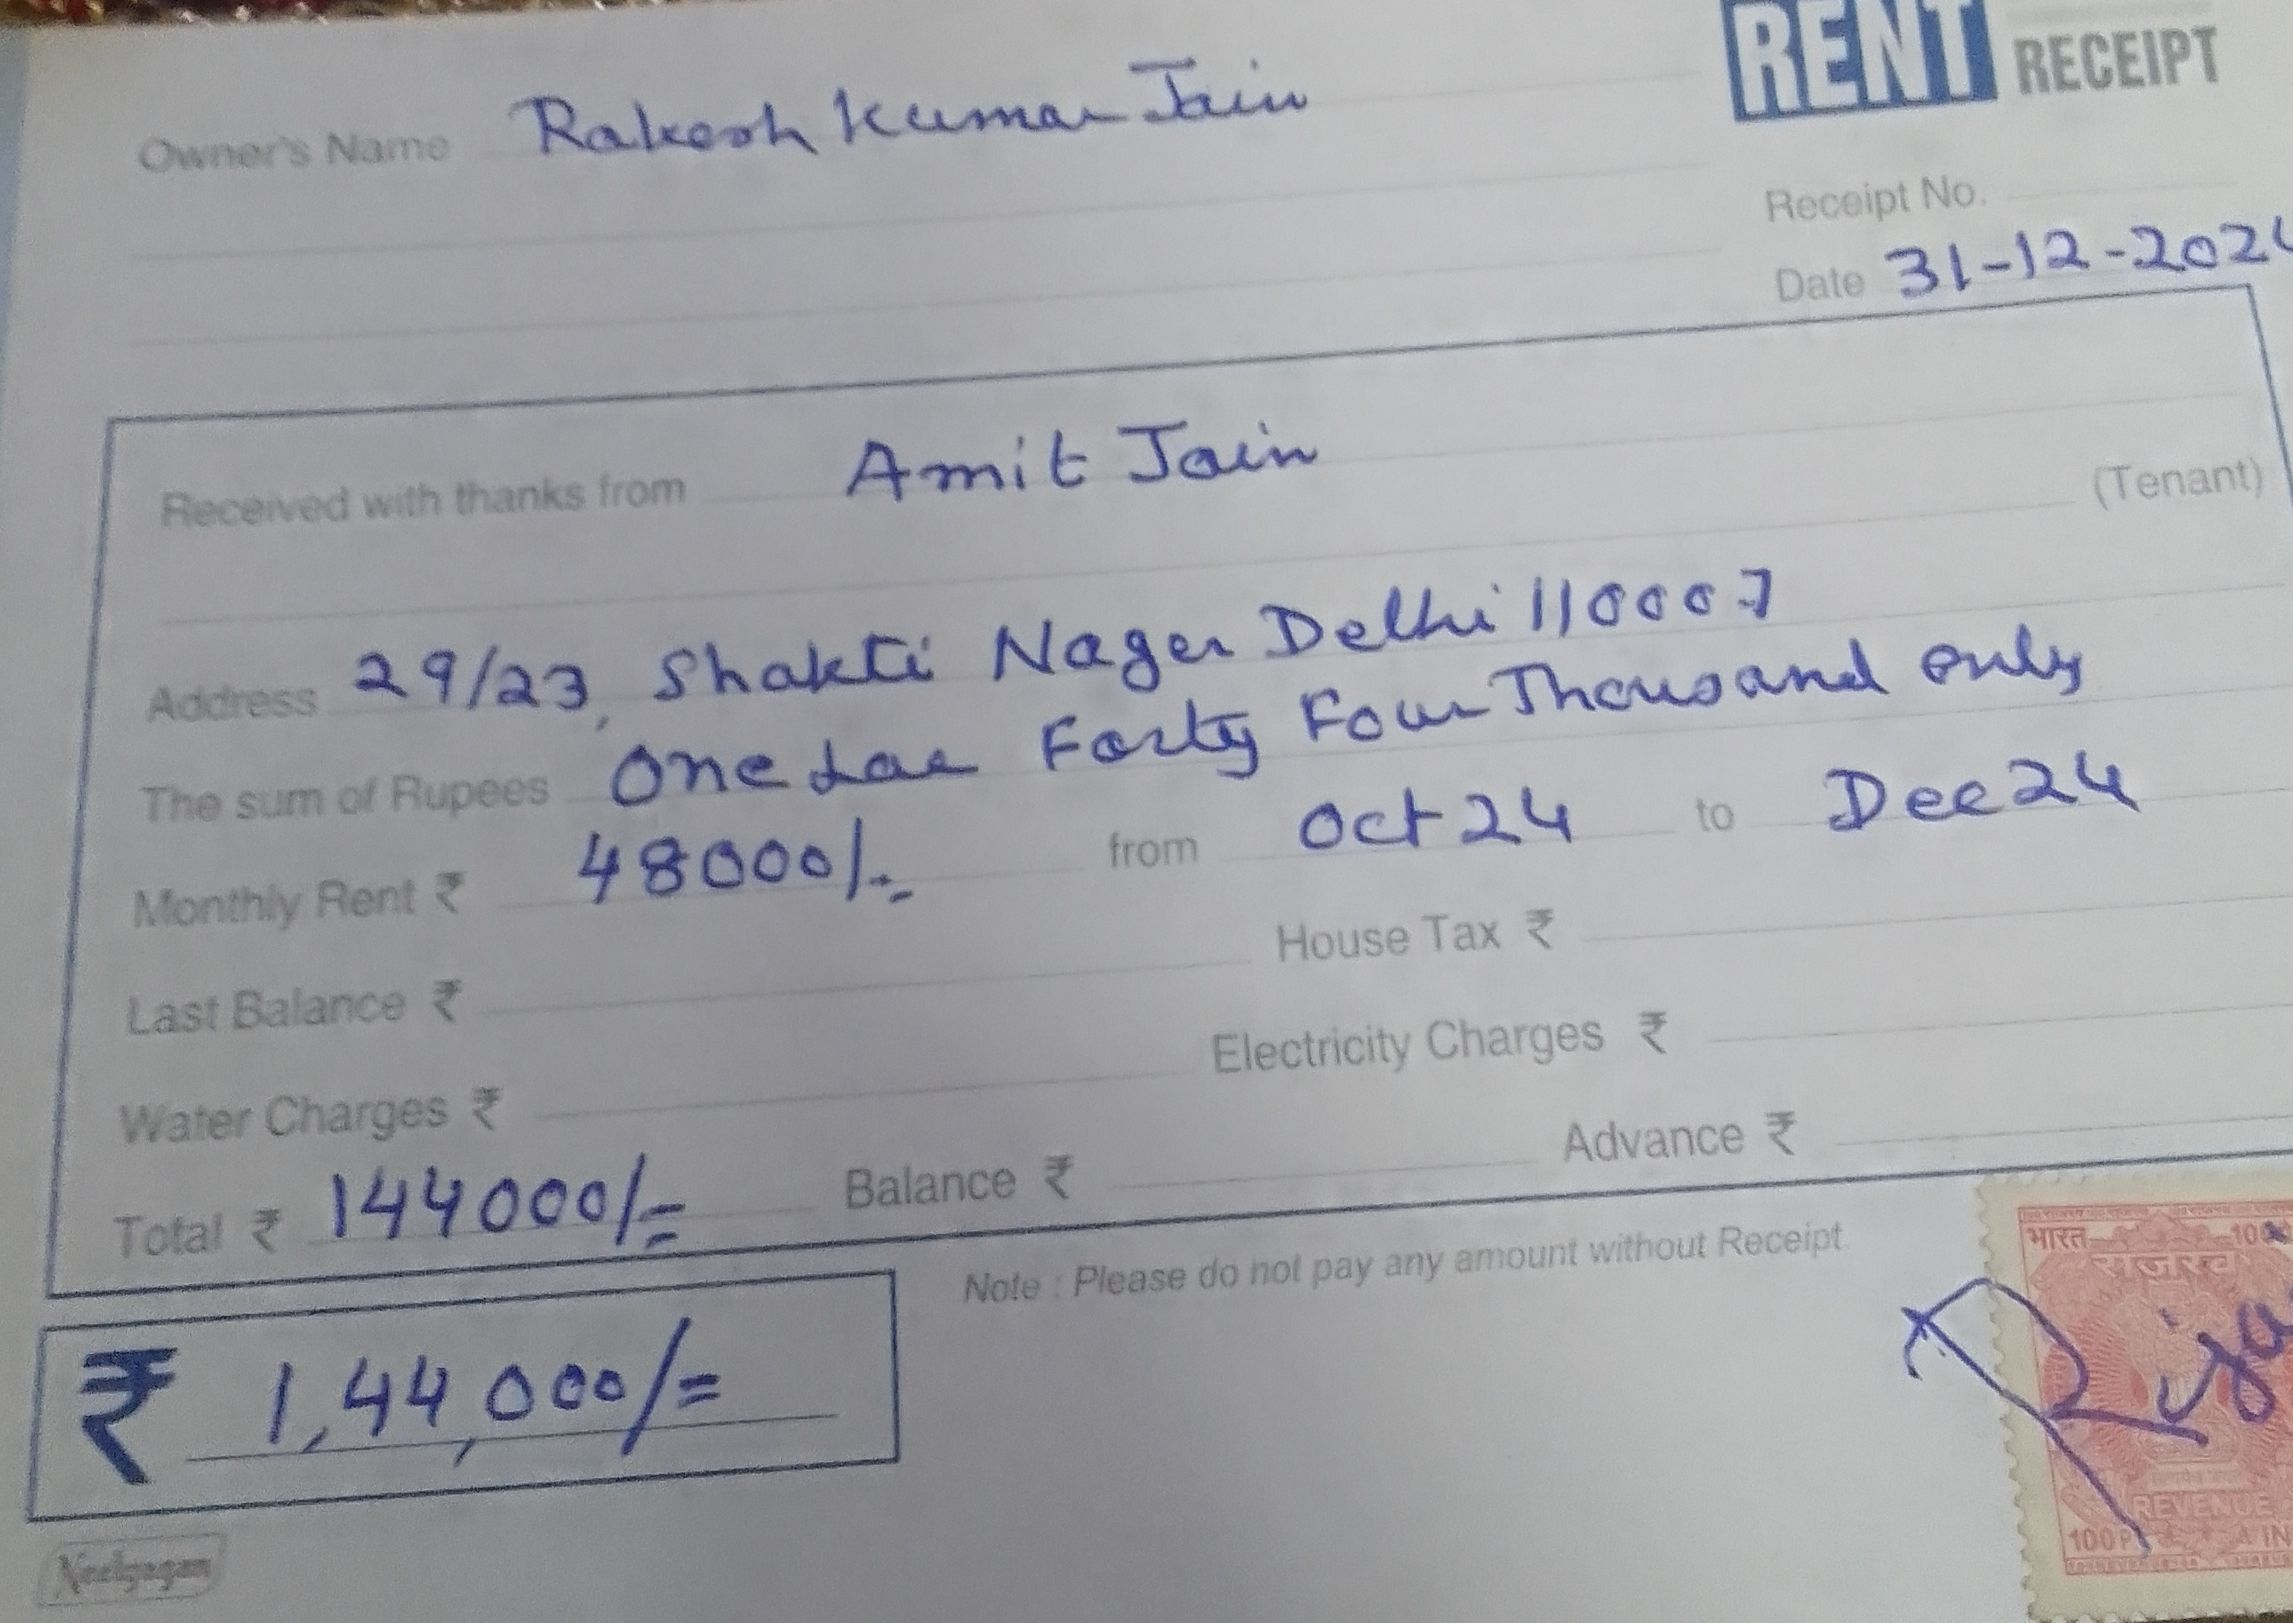 RENT RECEIPT
Owner's Name Rakesh Kumar Jain
Receipt No.
Date 31-12-202
Received with thanks from Amit Jain (Tenant)
Address 29/23, Shakti Nagar Delhi 110007
The sum of Rupees One Lac Forty Four Thousand only
Monthly Rent ₹ 48000/- from Oct 24 to Dec 24
Last Balance ₹ House Tax ₹
Water Charges ₹ Electricity Charges ₹
Total ₹ 144000/= Balance ₹ Advance ₹
Note : Please do not pay any amount without Receipt.
₹ 1,44,000/=
भारत 100
राजस्व
REVENUE
100P IN
Neelgagan